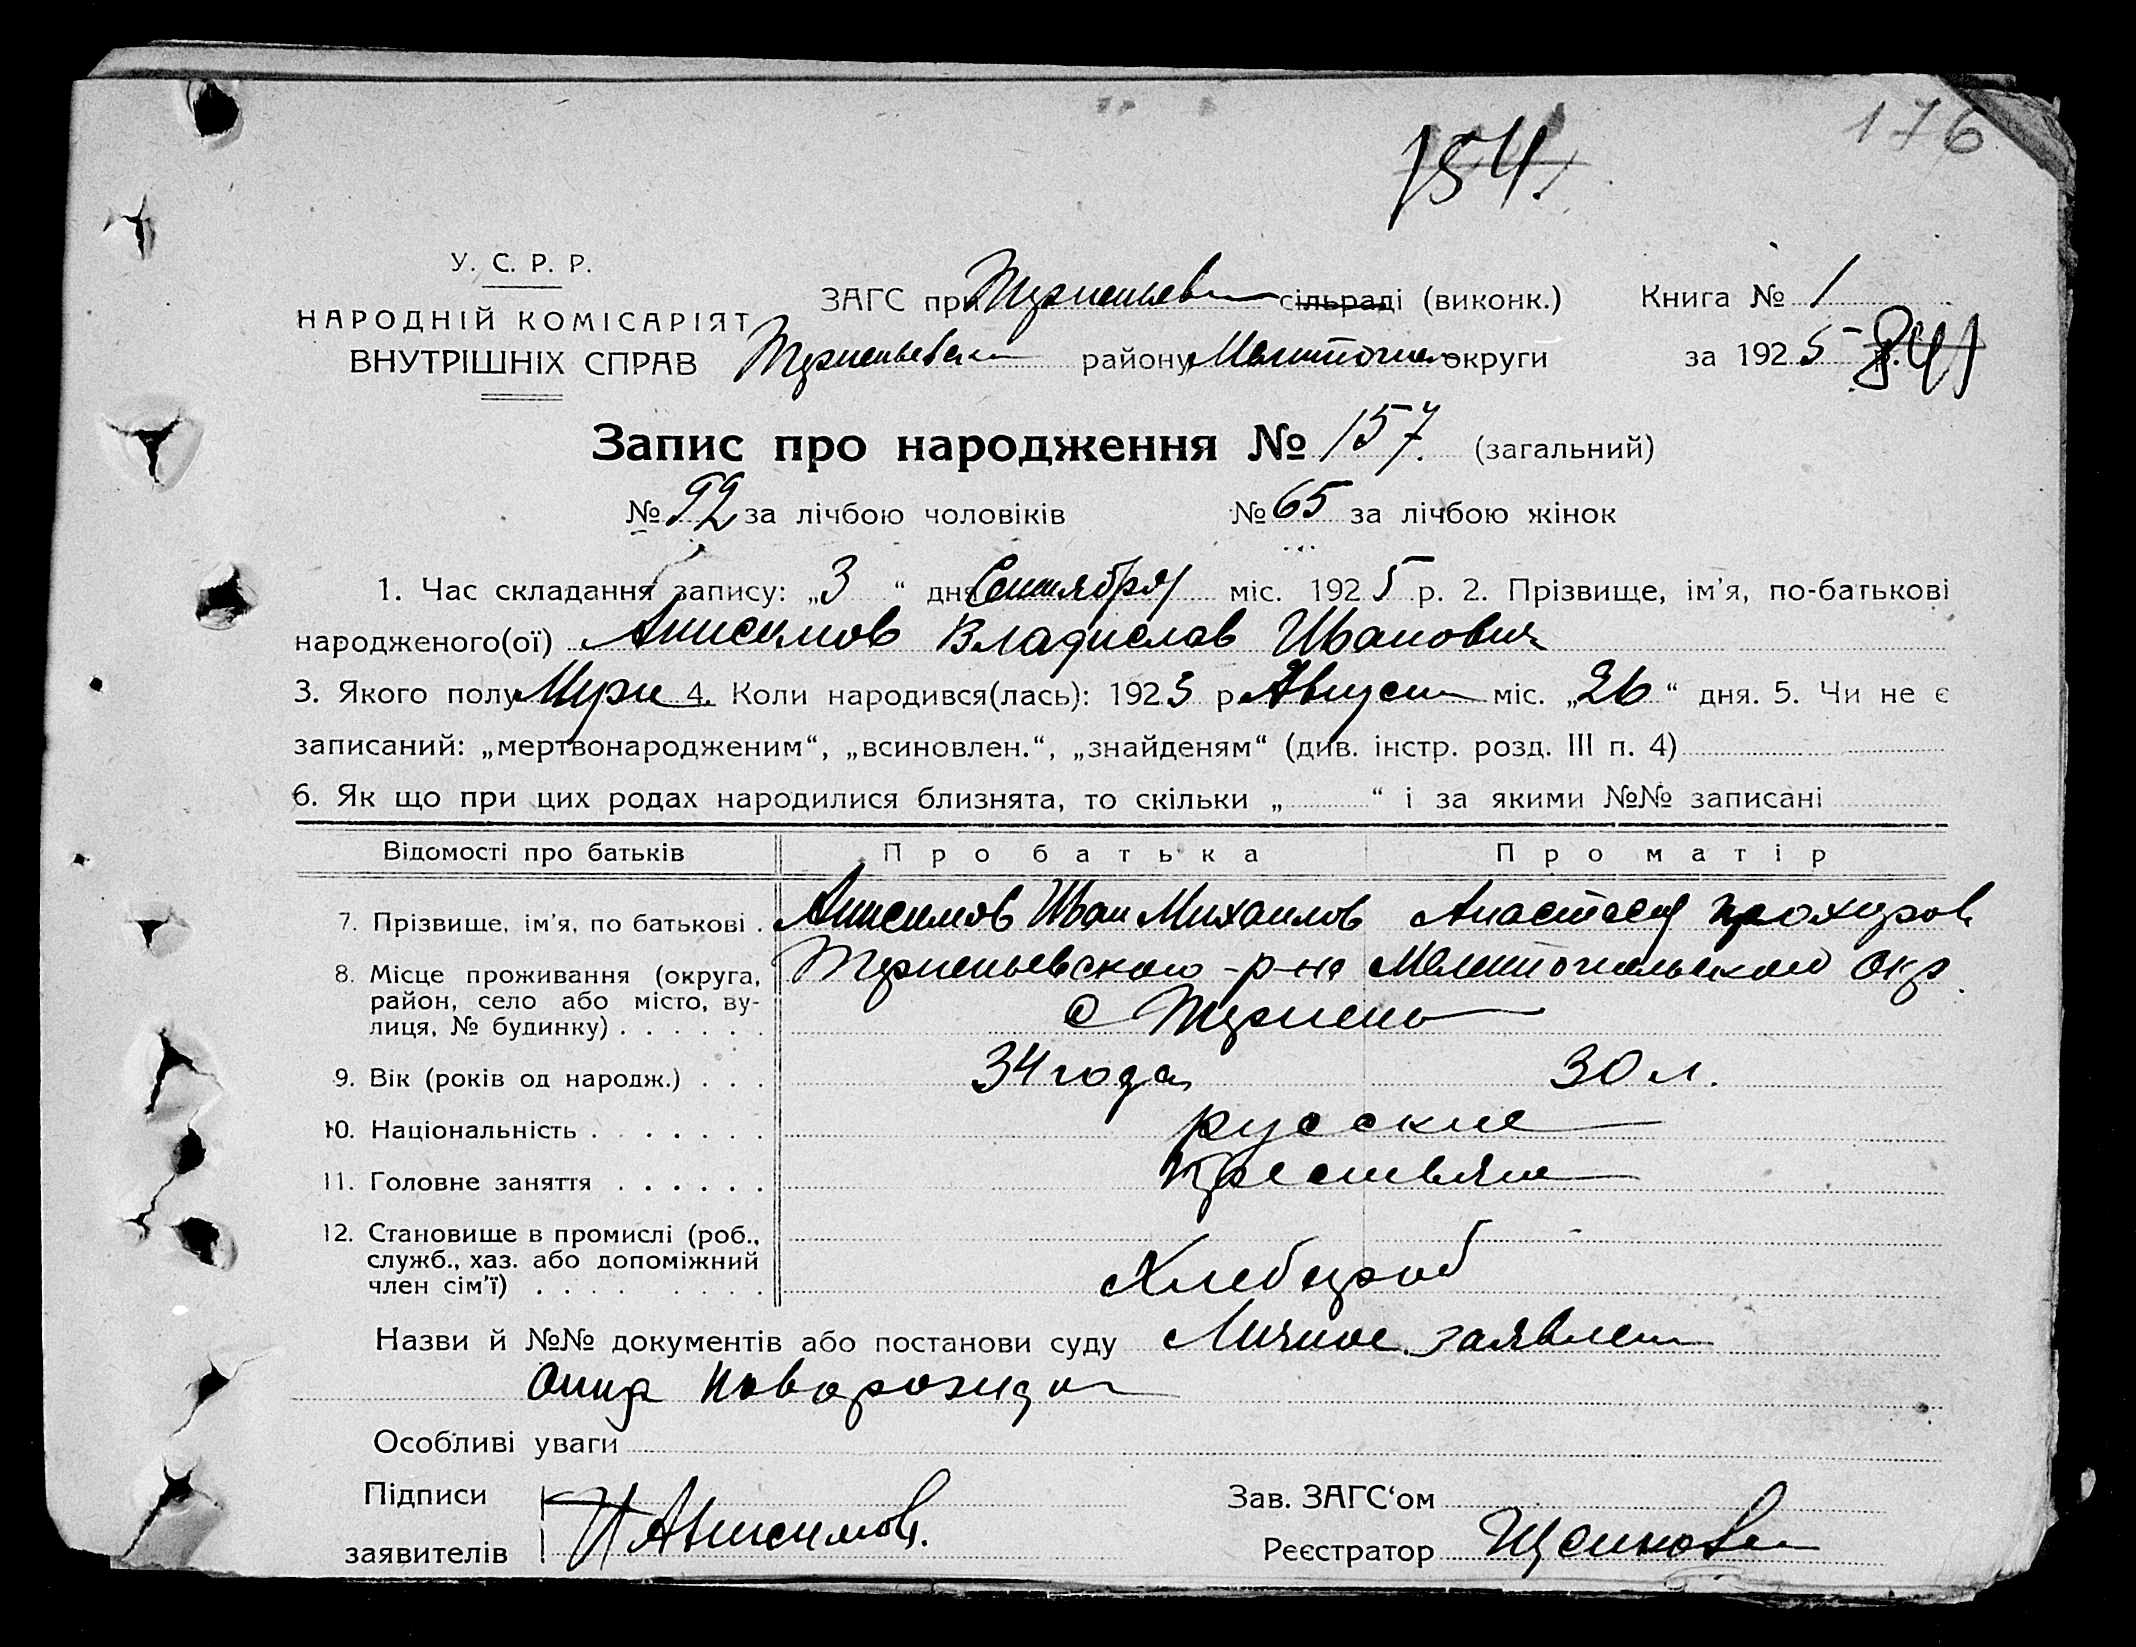 176
154.
У. С. Р. Р.
НАРОДНІЙ КОМІСАРІЯТ
ВНУТРІШНІХ СПРАВ
ЗАГС при сільраді (виконк.)
Книга № 1
району округи
за 1925 р. 841
Запис про народження № 157. (загальний)
№ 92 за лічбою чоловіків № 65 за лічбою жінок
1. Час складання запису: „3“ дня Сентября міс. 1925 р. 2. Прізвище, ім'я, по-батькові
народженого(ої) Анисимов Владислав Иванович
3. Якого полу Муж 4. Коли народився(лась): 1923 р Август міс. „26“ дня. 5. Чи не є
записаний: „мертвонародженим“, „всиновлен.“, „знайденям“ (див. інстр. розд. III п. 4)
6. Як що при цих родах народилися близнята, то скільки „ “ і за якими №№ записані
Відомості про батьків Про батька Про матір
7. Прізвище, ім'я, по батькові . Анисимов Иван Михаилов Анастасия Прохоров
8. Місце проживання (округа,
район, село або місто, ву-
лиця, № будинку) . . . . . .
р-на Мелитопольского окр.
с
9. Вік (років од народж.) . . . 34 года 30 л.
10. Національність . . . . . . . русские
11. Головне заняття . . . . . . Крестьяне
12. Становище в промислі (роб.,
служб., хаз. або допоміжний
член сім'ї) . . . . . . . .
Хлебороб
Назви й №№ документів або постанови суду Личное заявлен
отца новорожд
Особливі уваги
Підписи
заявителів
И Анисимов.
Зав. ЗАГС'ом
Реєстратор